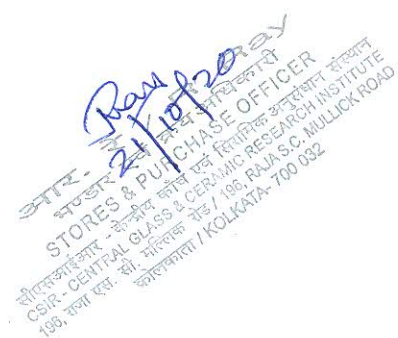 आर. Ray
भण्डार एवं क्रय अधिकारी
STORES & PURCHASE OFFICER
सीएसआईआर - केन्द्रीय काँच एवं सिरामिक अनुसंधान संस्थान
CSIR - CENTRAL GLASS & CERAMIC RESEARCH INSTITUTE
196, राजा एस. सी. मल्लिक रोड / 196, RAJA S.C. MULLICK ROAD
कोलकाता / KOLKATA- 700 032
21/10/20